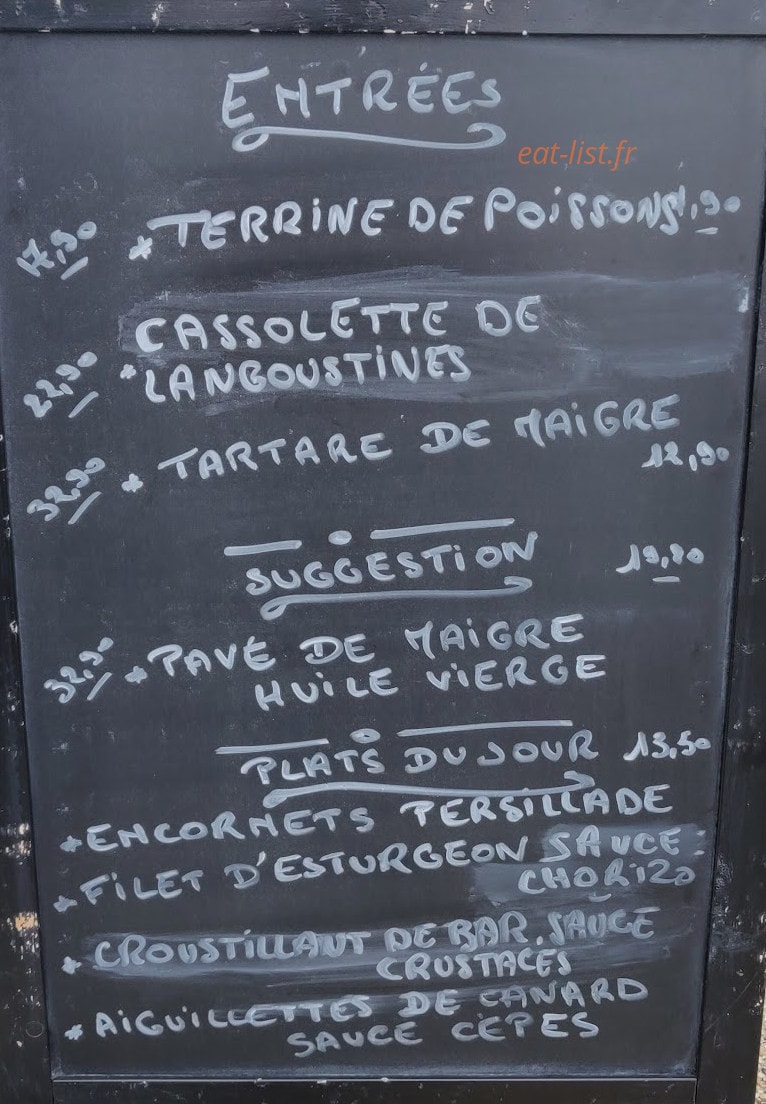 ENTRÉES
eat-list.fr
17,90 * TERRINE DE POISSONS ,90
CASSOLETTE DE
22,90 * LANGOUSTINES
32,90 * TARTARE DE MAIGRE
12,90
SUGGESTION 19,80
32,90 * PAVÉ DE MAIGRE
HUILE VIERGE
PLATS DU JOUR 13,50
* ENCORNETS PERSILLADE
* FILET D'ESTURGEON SAUCE
CHORIZO
* CROUSTILLANT DE BAR. SAUCE
CRUSTACES
* AIGUILLETTES DE CANARD
SAUCE CÈPES